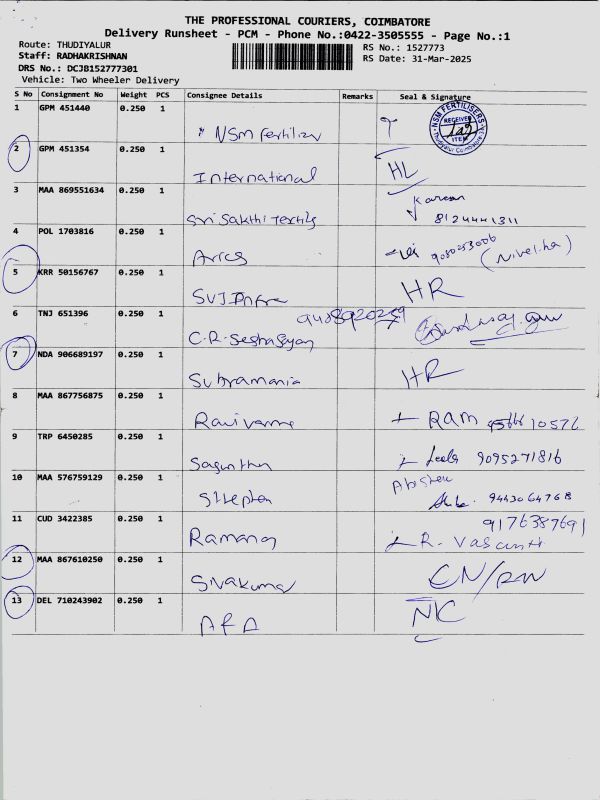 THE PROFESSIONAL COURIERS, COIMBATORE
Delivery Runsheet - PCM - Phone No.:0422-3505555 - Page No.:1
Route: THUDIYALUR
RS No.: 1527773
Staff: RADHAKRISHNAN
RS Date: 31-Mar-2025
DRS No.: DCJB152777301
Vehicle: Two Wheeler Delivery
S No Consignment No Weight PCS Consignee Details Remarks Seal & Signature
1 GPM 451440 0.250 1 NSM Fertilizer
NSM FERTILISERS RECEIVED Thudiyalur Coimbatore
2 GPM 451354 0.250 1 International HL
3 MAA 869551634 0.250 1 Sri Sakthi Textils 8124441311
4 POL 1703816 0.250 1 Aries 9080253006
5 KRR 50156767 0.250 1 SVJ Infra HR
6 TNJ 651396 0.250 1 C.R. Seshasayan
7 NDA 906689197 0.250 1 Subramania HR
8 MAA 867756875 0.250 1 Ravi varma RAM
9 TRP 6450285 0.250 1 9095271816
10 MAA 576759129 0.250 1 Stephen 9443064768
11 CUD 3422385 0.250 1 Ramana 9176387691
R. Vasanti
12 MAA 867610250 0.250 1 Sivakumar
13 DEL 710243902 0.250 1 AFA NC